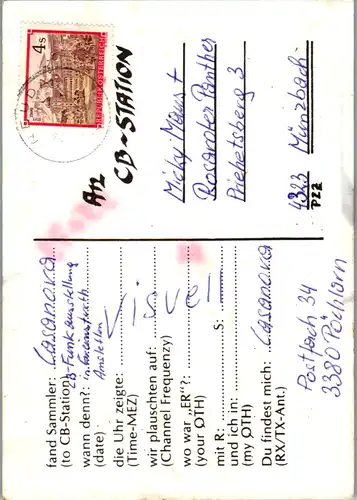 4 S
REPUBLIK ÖSTERREICH
An
CB-STATION
Micky Maus +
Rosaroter Panther
Priehetsberg 3
4323 Münzbach
PZ2
fand Sammler: Casanova
(to CB-Station) CB-Funkausstellung
wann denn?:
(date) Amstetten
die Uhr zeigte:
(Time-MEZ)
wir plauschten auf:
(Channel Frequenzy)
wo war „ER"?:
(your QTH)
mit R: S:
und ich in:
(my QTH)
Du findest mich: Casanova
(RX/TX-Ant.)
Postfach 34
3380 Pöchlarn